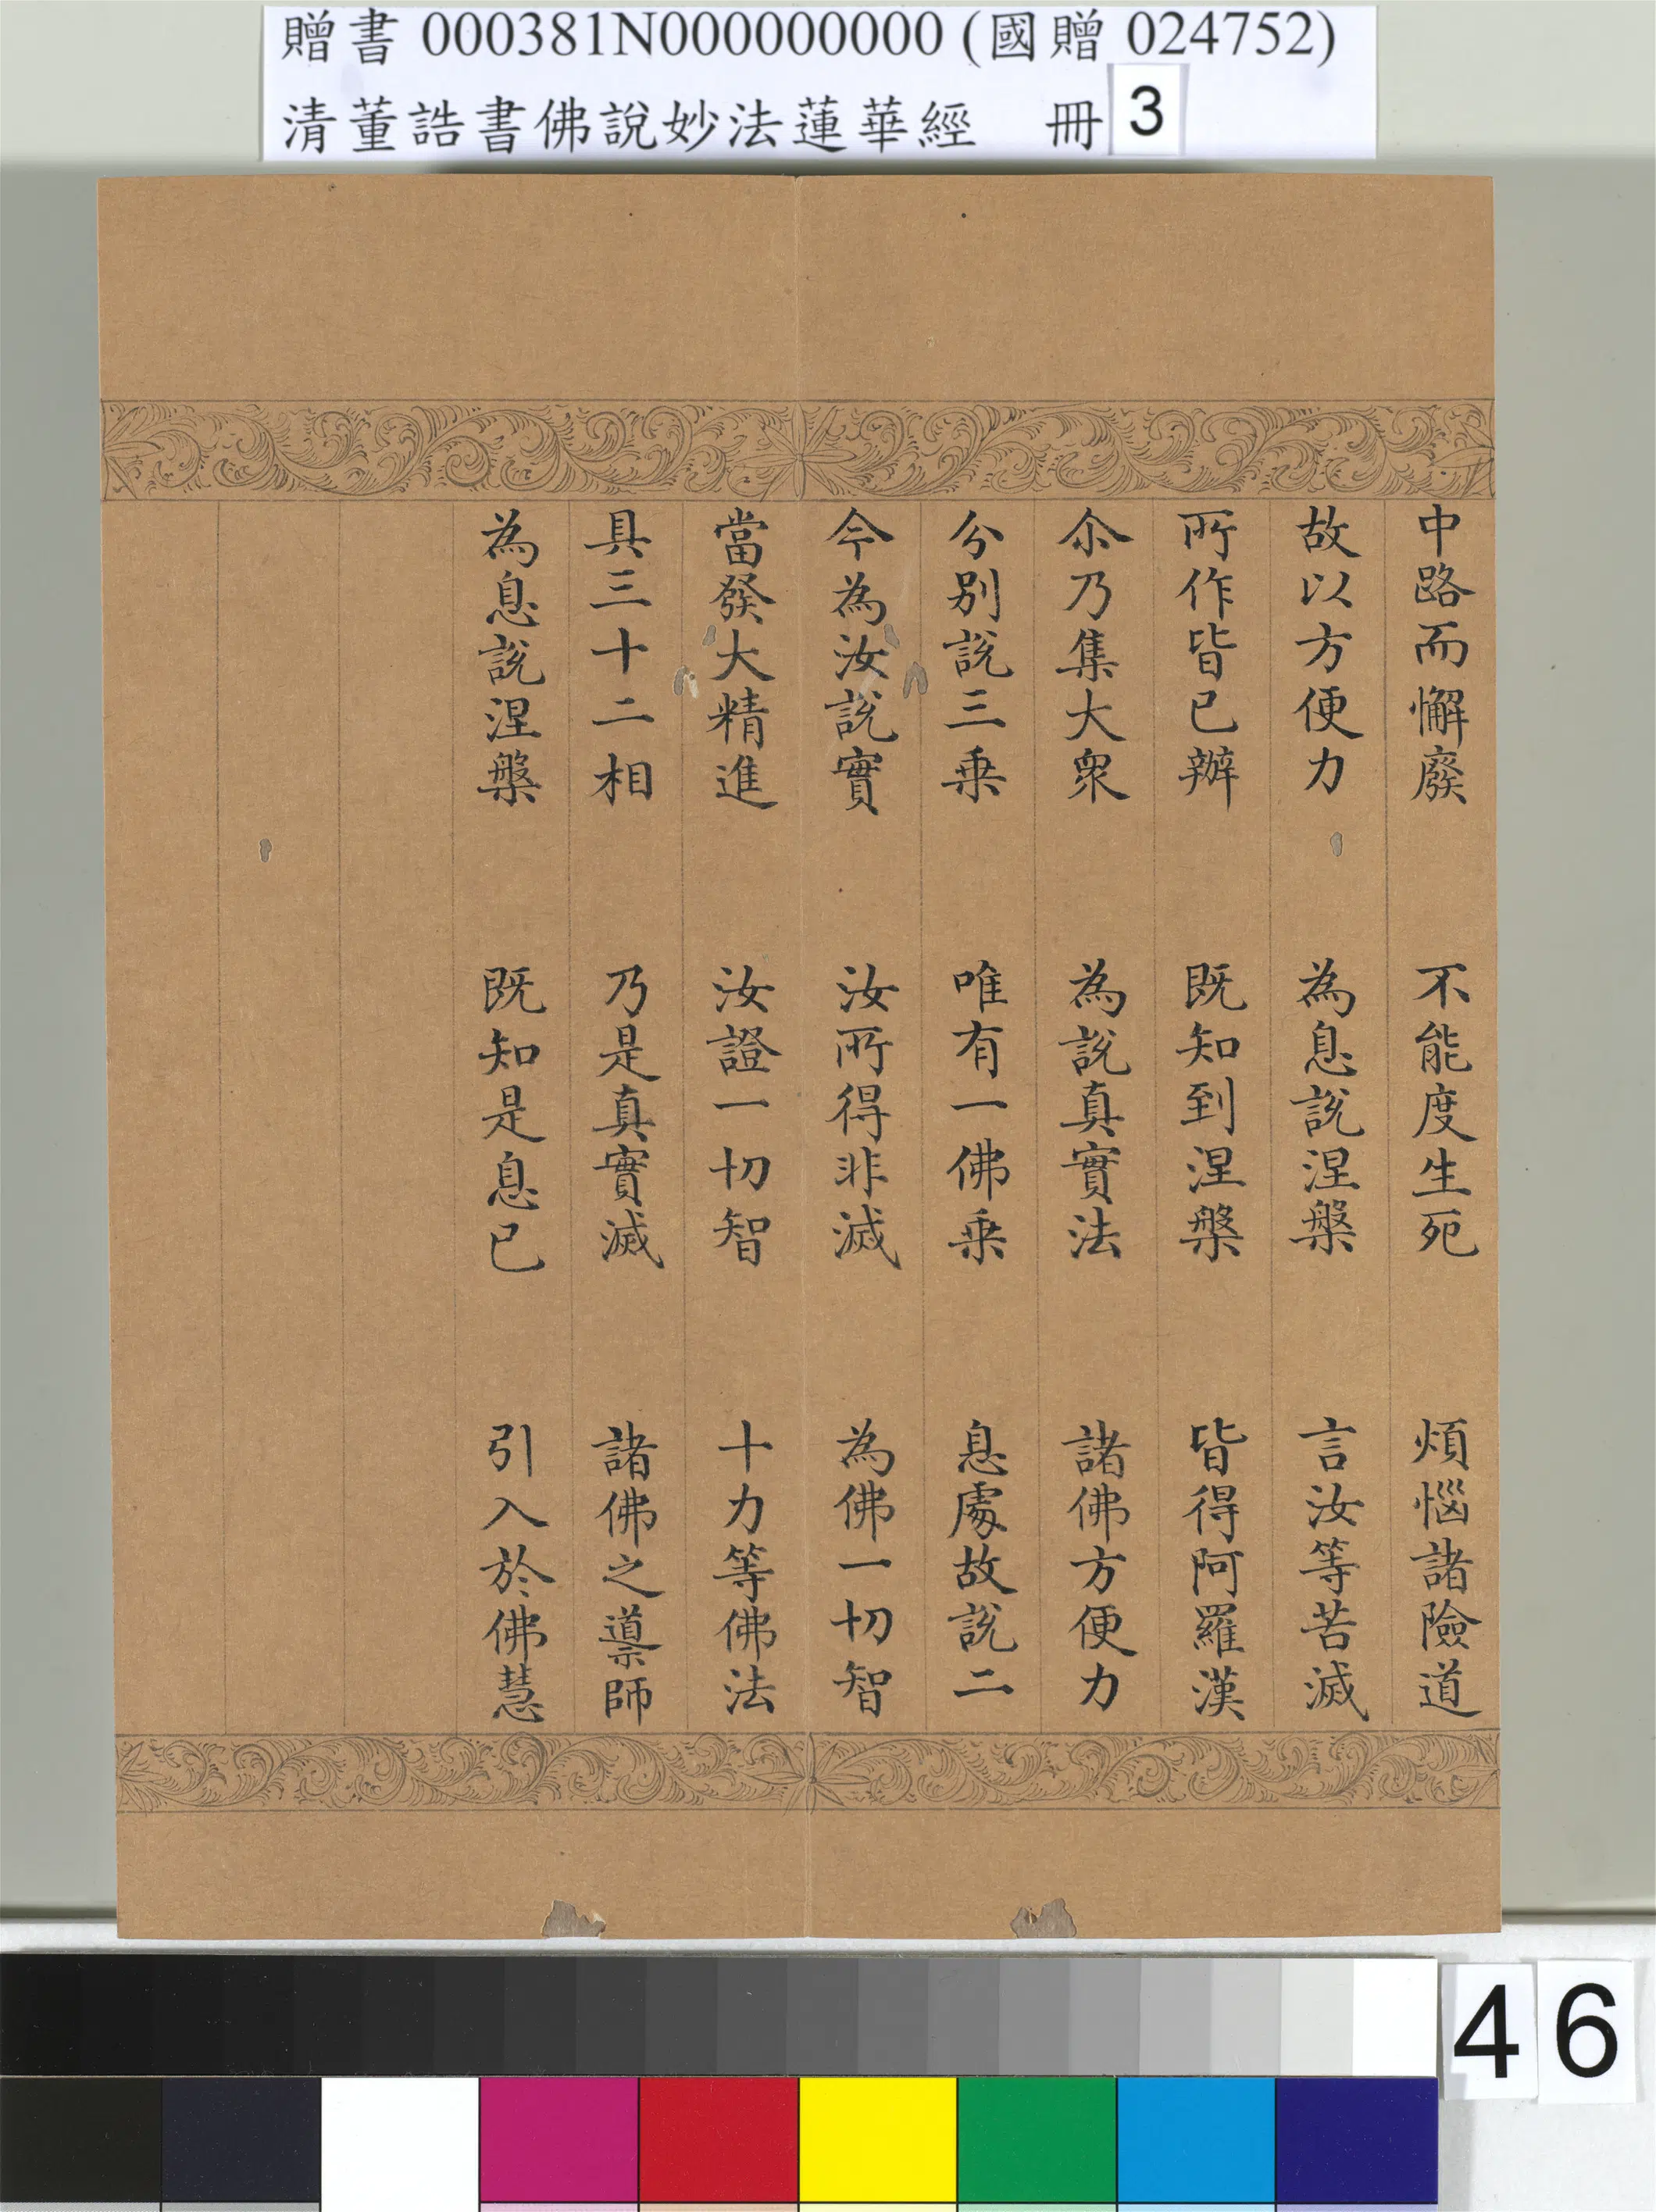 贈書 000381N000000000 (國贈 024752)
清董誥書佛說妙法蓮華經 冊 3
中路而懈廢 不能度生死 煩惱諸險道
故以方便力 為息說涅槃 言汝等苦滅
所作皆已辦 既知到涅槃 皆得阿羅漢
尒乃集大衆 為說真實法 諸佛方便力
分別說三乗 唯有一佛乗 息處故說二
今為汝說實 汝所得非滅 為佛一切智
當發大精進 汝證一切智 十力等佛法
具三十二相 乃是真實滅 諸佛之導師
為息說涅槃 既知是息已 引入於佛慧
46